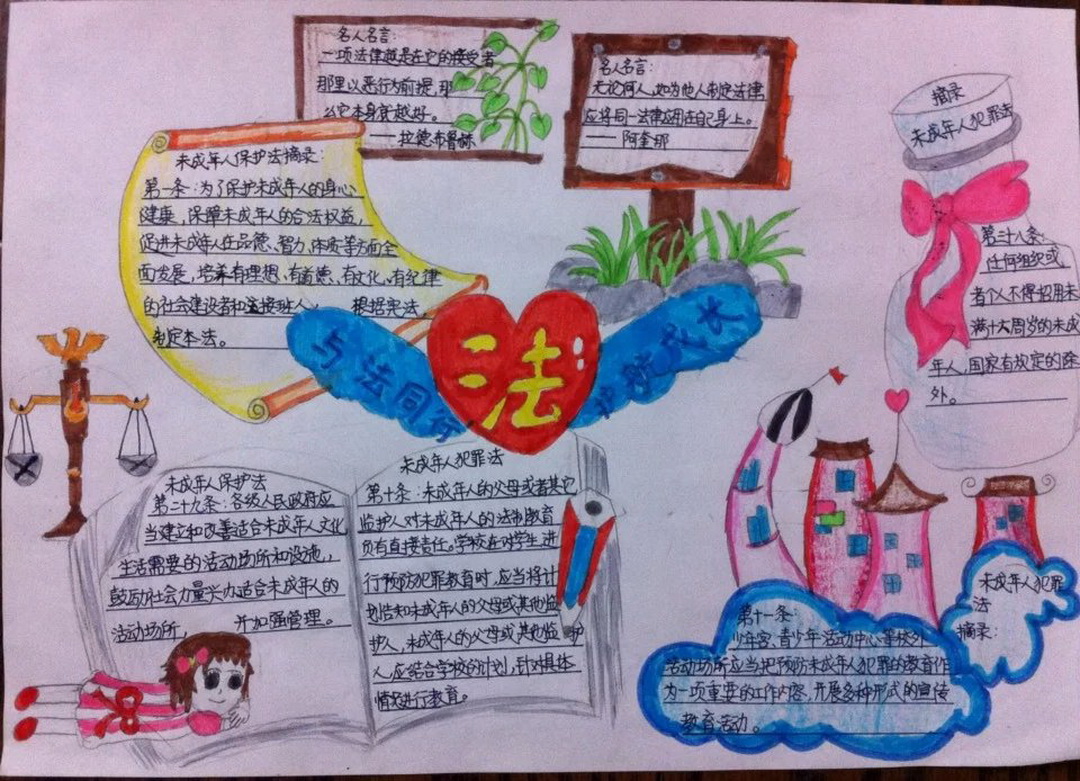 名人名言:
一项法律越是在它的接受者
那里以恶行为前提,那
么它本身就越好。
——拉德布鲁赫
名人名言:
无论何人,如为他人制定法律
应将同一法律应用在自己身上。
——阿奎那
摘录
未成年人犯罪法
第二十八条:
任何组织或
者个人不得招用未
满十六周岁的未成
年人,国家有规定的除
外。
未成年人保护法摘录:
第一条:为了保护未成年人的身心
健康,保障未成年人的合法权益,
促进未成年人在品德、智力、体质等方面全
面发展,培养有理想、有道德、有文化、有纪律
的社会建设者和接班人,根据宪法
制定本法。
与法同行
法
护航成长
未成年人保护法
第二十九条:各级人民政府应
当建立和改善适合未成年人文化
生活需要的活动场所和设施,
鼓励社会力量兴办适合未成年人的
活动场所,并加强管理。
未成年人犯罪法
第十条:未成年人的父母或者其它
监护人对未成年人的法制教育
负有直接责任。学校在对学生进
行预防犯罪教育时,应当将计
划告知未成年人的父母或其他监
护人,未成年人的父母或其他监护
人,应结合学校的计划,针对具体
情况进行教育。
未成年人犯罪
法
摘录:
第十一条:
少年宫、青少年活动中心等校外
活动场所应当把预防未成年人犯罪的教育作
为一项重要的工作内容,开展多种形式的宣传
教育活动。